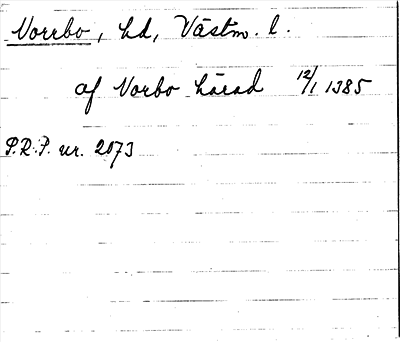 Norrbo, hd, Västm. l.
af Norbo härad 12/1 1385
P.R.P. nr. 2073